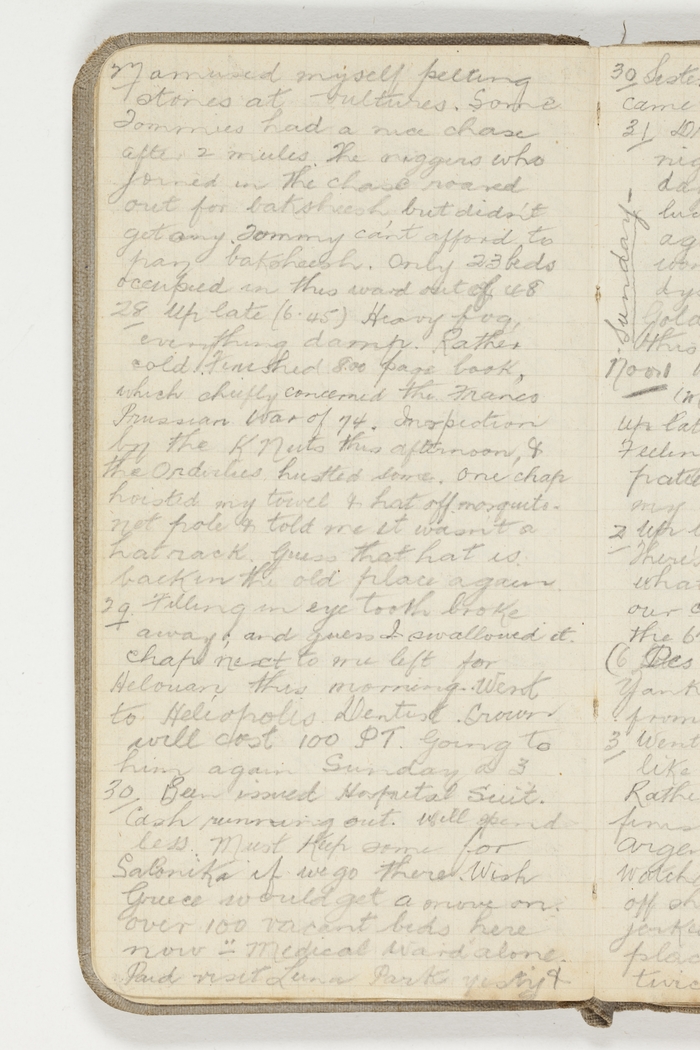 27 amused myself pelting
stones at vultures. Some
Tommies had a nice chase
after 2 mules. The niggers who
joined in the chase roared
out for baksheesh but didn't
get any. Tommy can't afford to
pay baksheesh. Only 23 beds
occupied in this ward out of 48
28 Up late (6.45) Heavy fog,
everything damp. Rather
cold. Finished 800 page book,
which chiefly concerned the Franco
Prussian War of 74. Inspection
by the K Nuts this afternoon, &
the Orderlies hustled some. One chap
hoisted my towel & hat off mosquito-
net pole & told me it wasn't a
hat rack. Guess that hat is
back in the old place again.
29 Filling in eye tooth broke
away, and guess I swallowed it.
Chap next to me left for
Helouan this morning. Went
to Heliopolis Dentist. Crown
will cost 100 PT. Going to
him again Sunday @ 3.
30 Been issued Hospital Suit.
Cash running out. Will spend
less. Must keep some for
Salonika if we go there. Wish
Greece would get a move on.
Over 100 vacant beds here
now - Medical Ward alone.
Paid visit Luna Park
30 Siste
came
31
Sunday -
Gold
this
Nov 1
up lat
Feelin
my
2 Up
There's
wha
our c
the 6
(6 Des
Yank
from
3 Went
like
Rathe
Watch
off sh
plac
twic